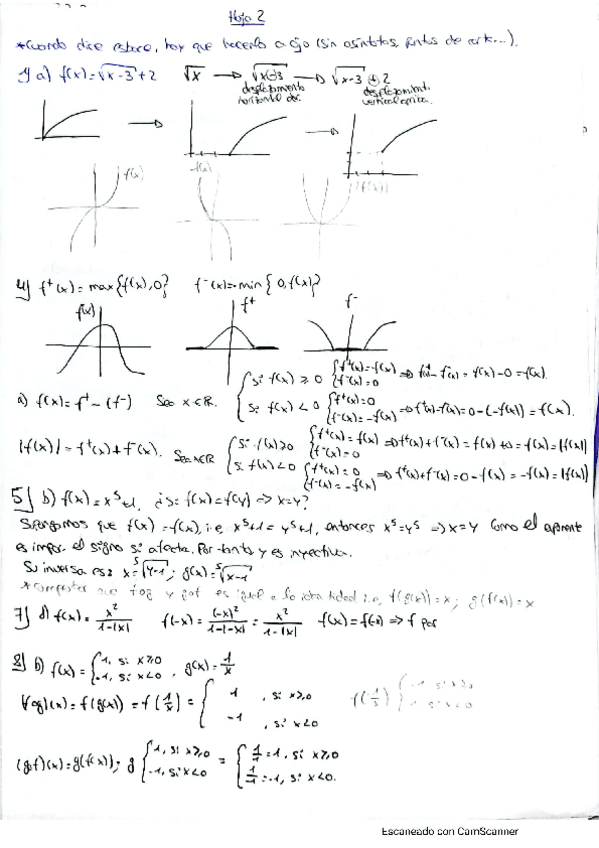 Hoja 2
*Cuando dice esboce, hay que hacerlo a ojo (sin asíntotas, puntos de corte...).
1) a) f(x)=√x-3+2 √x → √x-3 → √x-3 + 2
desplazamiento horizontal der.
desplazamiento vertical arriba.
f(x) f(x) |f(x)|
4) f⁺(x)=max{f(x),0} f⁻(x)=min{0,f(x)}
f(x) f⁺ f⁻
a) f(x)=f⁺-(f⁻) Sea x∈ℝ. { si f(x)≥0 {f⁺(x)=f(x) f⁻(x)=0 ⇒ f⁺(x)-f⁻(x)=f(x)-0=f(x).
si f(x)<0 {f⁺(x)=0 f⁻(x)=-f(x) ⇒ f⁺(x)-f⁻(x)=0-(-f(x))=f(x).
|f(x)|=f⁺(x)+f⁻(x). Sea x∈ℝ { si f(x)≥0 {f⁺(x)=f(x) f⁻(x)=0 ⇒ f⁺(x)+f⁻(x)=f(x)+0=f(x)=|f(x)|
si f(x)<0 {f⁺(x)=0 f⁻(x)=-f(x) ⇒ f⁺(x)+f⁻(x)=0-f(x)=-f(x)=|f(x)|
5) b) f(x)=x⁵+1, ¿si f(x)=f(y) ⇒ x=y?
Supongamos que f(x)=f(x), i.e, x⁵+1=y⁵+1, entonces x⁵=y⁵ ⇒ x=y Como el exponente
es impar el signo si afecta. Por tanto y es inyectiva.
Su inversa es: x=⁵√y-1; g(x)=⁵√x-1
*Comprobar que fog y gof es igual a la identidad i.e, f(g(x))=x; g(f(x))=x
7) d) f(x)=x²/1-|x| f(-x)=(-x)²/1-|-x|=x²/1-|x| f(x)=f(-x) ⇒ f par
8) b) f(x)={1, si x≥0 -1, si x<0, g(x)=1/x
(fog)(x)=f(g(x))=f(1/x)={1, si x≥0 f(1/x){-1 si x≥0
-1, si x<0 -1 si x<0
(gof)(x)=g(f(x))=g{1, si x≥0 -1, si x<0 = {1/1=1, si x≥0
1/-1=-1, si x<0.
Escaneado con CamScanner